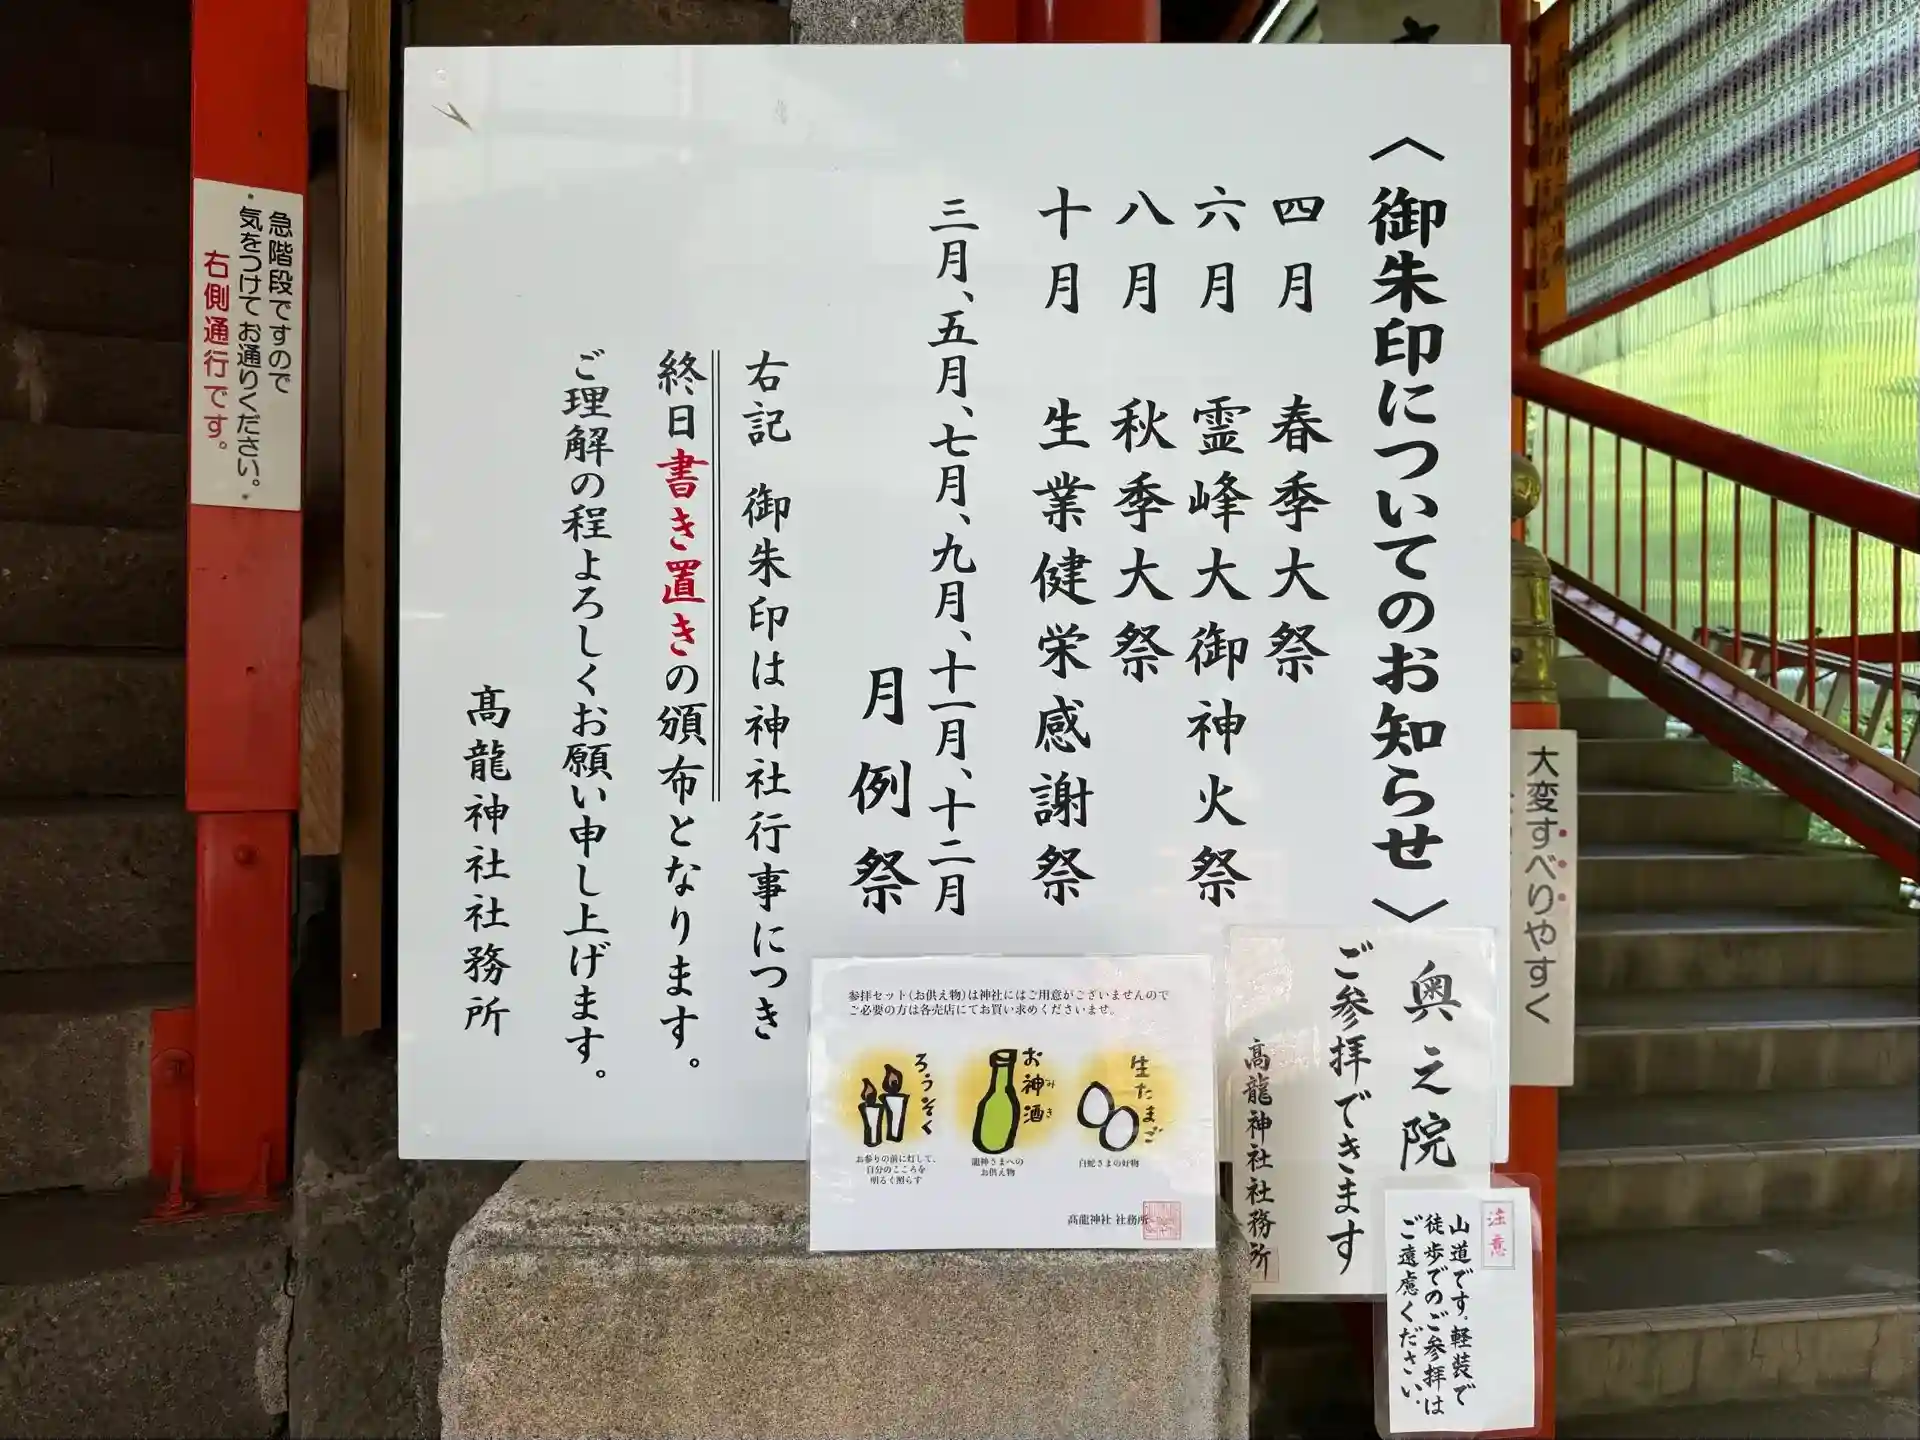 〈御朱印についてのお知らせ〉
四月 春季大祭
六月 霊峰大御神火祭
八月 秋季大祭
十月 生業健栄感謝祭
三月、五月、七月、九月、十一月、十二月
月例祭
右記 御朱印は神社行事につき
終日書き置きの頒布となります。
ご理解の程よろしくお願い申し上げます。
髙龍神社社務所
急階段ですので
気をつけてお通りください。
右側通行です。
大変すべりやすく
奥之院
ご参拝できます
髙龍神社社務所
注意
山道です。軽装で
徒歩でのご参拝は
ご遠慮ください。
参拝セット(お供え物)は神社にはご用意がございませんので
ご必要の方は各売店にてお買い求めくださいませ。
生たまご
白蛇さまの好物
お神酒
みき
龍神さまへの
お供え物
ろうそく
お参りの前に灯して、
自分のこころを
明るく照らす
髙龍神社 社務所